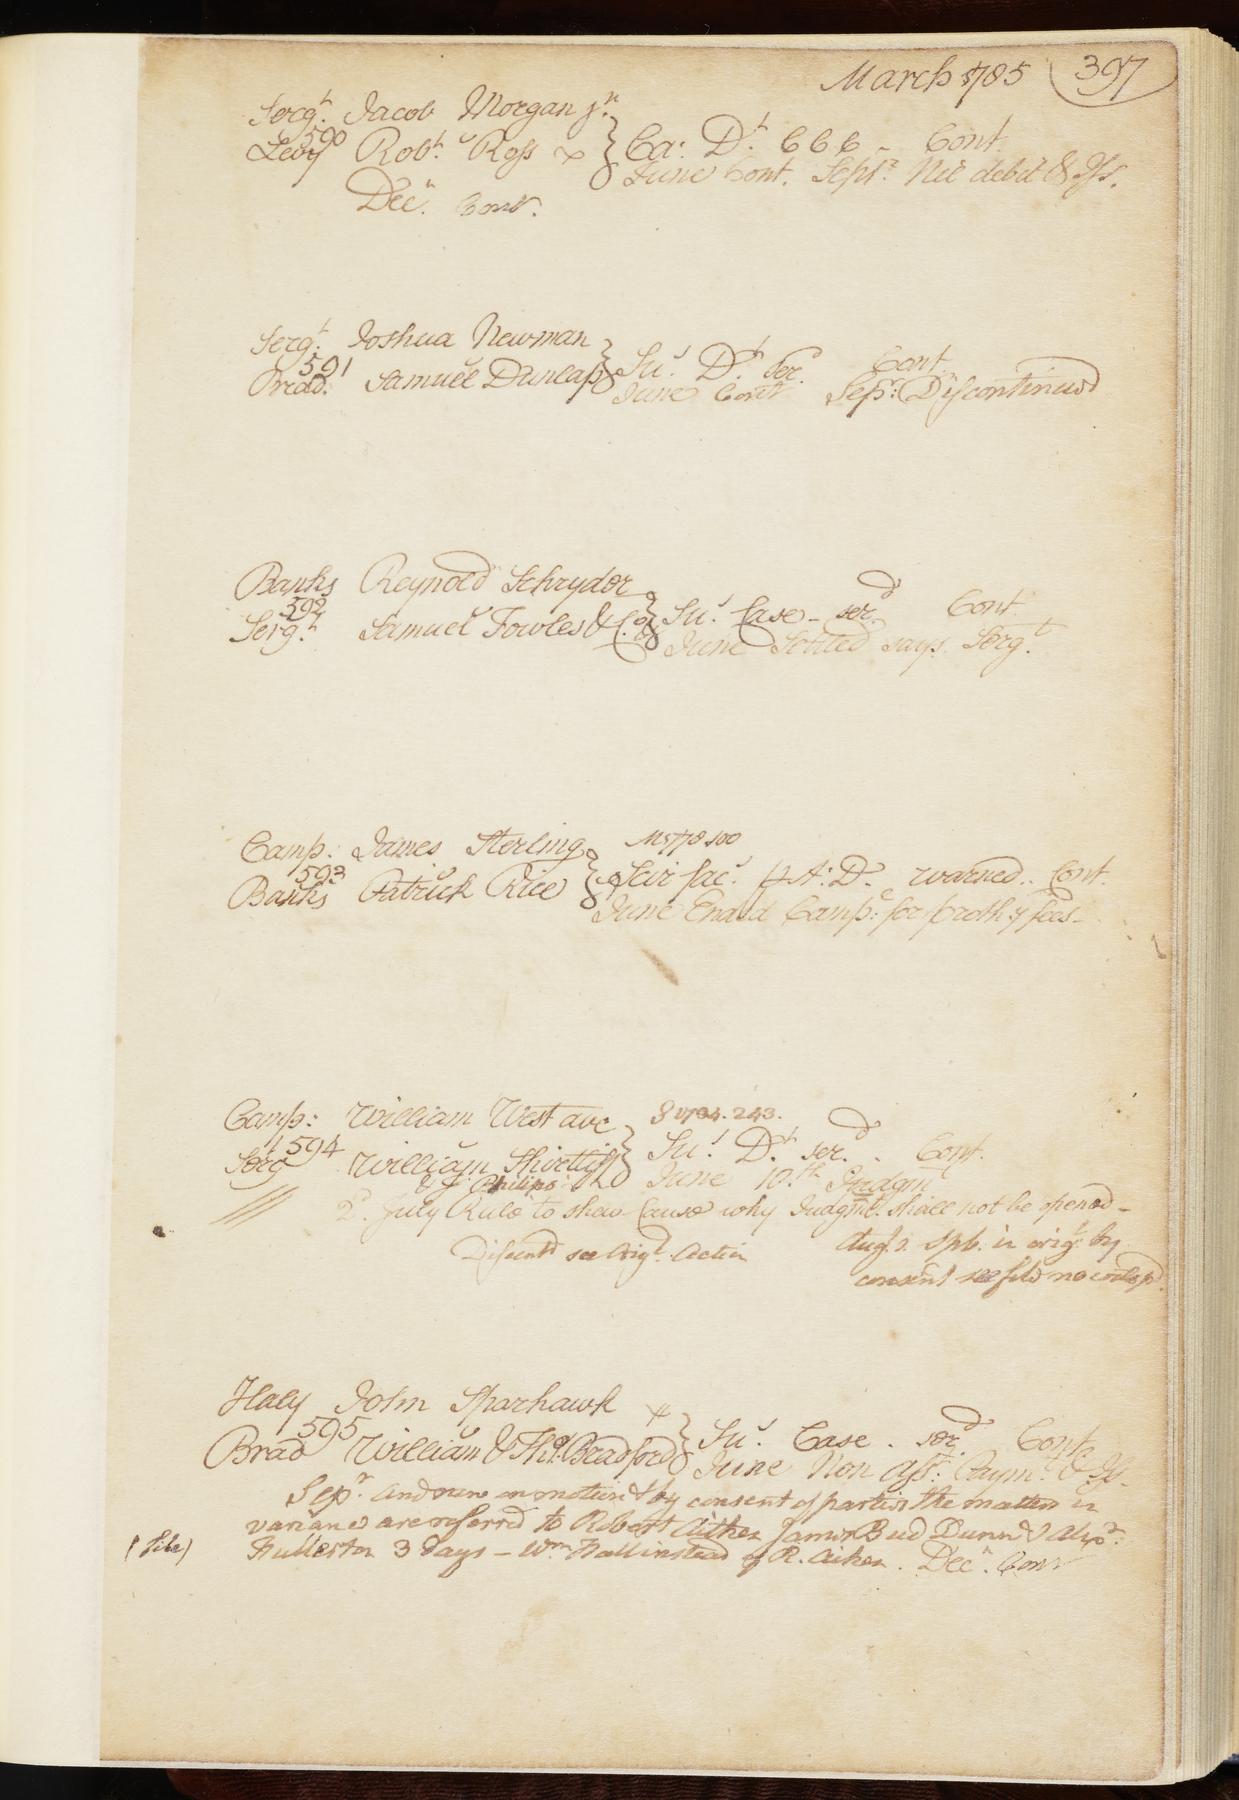 March 1785 397
Serg.t Jacob Morgan j.r
590
Levy Rob.t Ross x } Ca: D.t 666 - Cont.
June Cont. Sept.r Nil debet & Iss.
Dec.r Cont.
Serg.t Joshua Newman
591
Brad. Samuel Dunlap } Su.s D.t ser.d Cont
June Cont Sep.r: Discontinued
Banks Reynold Schryder
592
Serg.t Samuel Fowles & Co. } Su.s Case - ser.d Cont.
June Settled says Serg.t
Camp: James Sterling M 1778.100
593
Banks Patrick Rice } Scir fac.s A: D. warned. Cont.
June Ended Camp: for prothy fees -
Camp: William West ave S 1784.243.
594
Serg.t William Shirtliff } Su.s D.t ser.d . Cont.
& J. Philips June 10.th Judgm.t
2.d July Rule to shew Cause why Judgm.t shall not be opened -
Discont.d see Orig.l Action Aug. 2. Spb. in orig.l by
consent see filed no
Haly John Sparhawk x
595
Brad William & Tho.s Bradford } Su.s Case . ser.d Cont.
June Non Ass.t Paym.t & Iss.
Sep.r And now on motion & by consent of parties the matters in
variance are referred to Robert Aitken James Bud Dunn & Alex.r
(file) Fullerton 3 days - W.m Hall instead of R. Aitken . Dec.r Cont